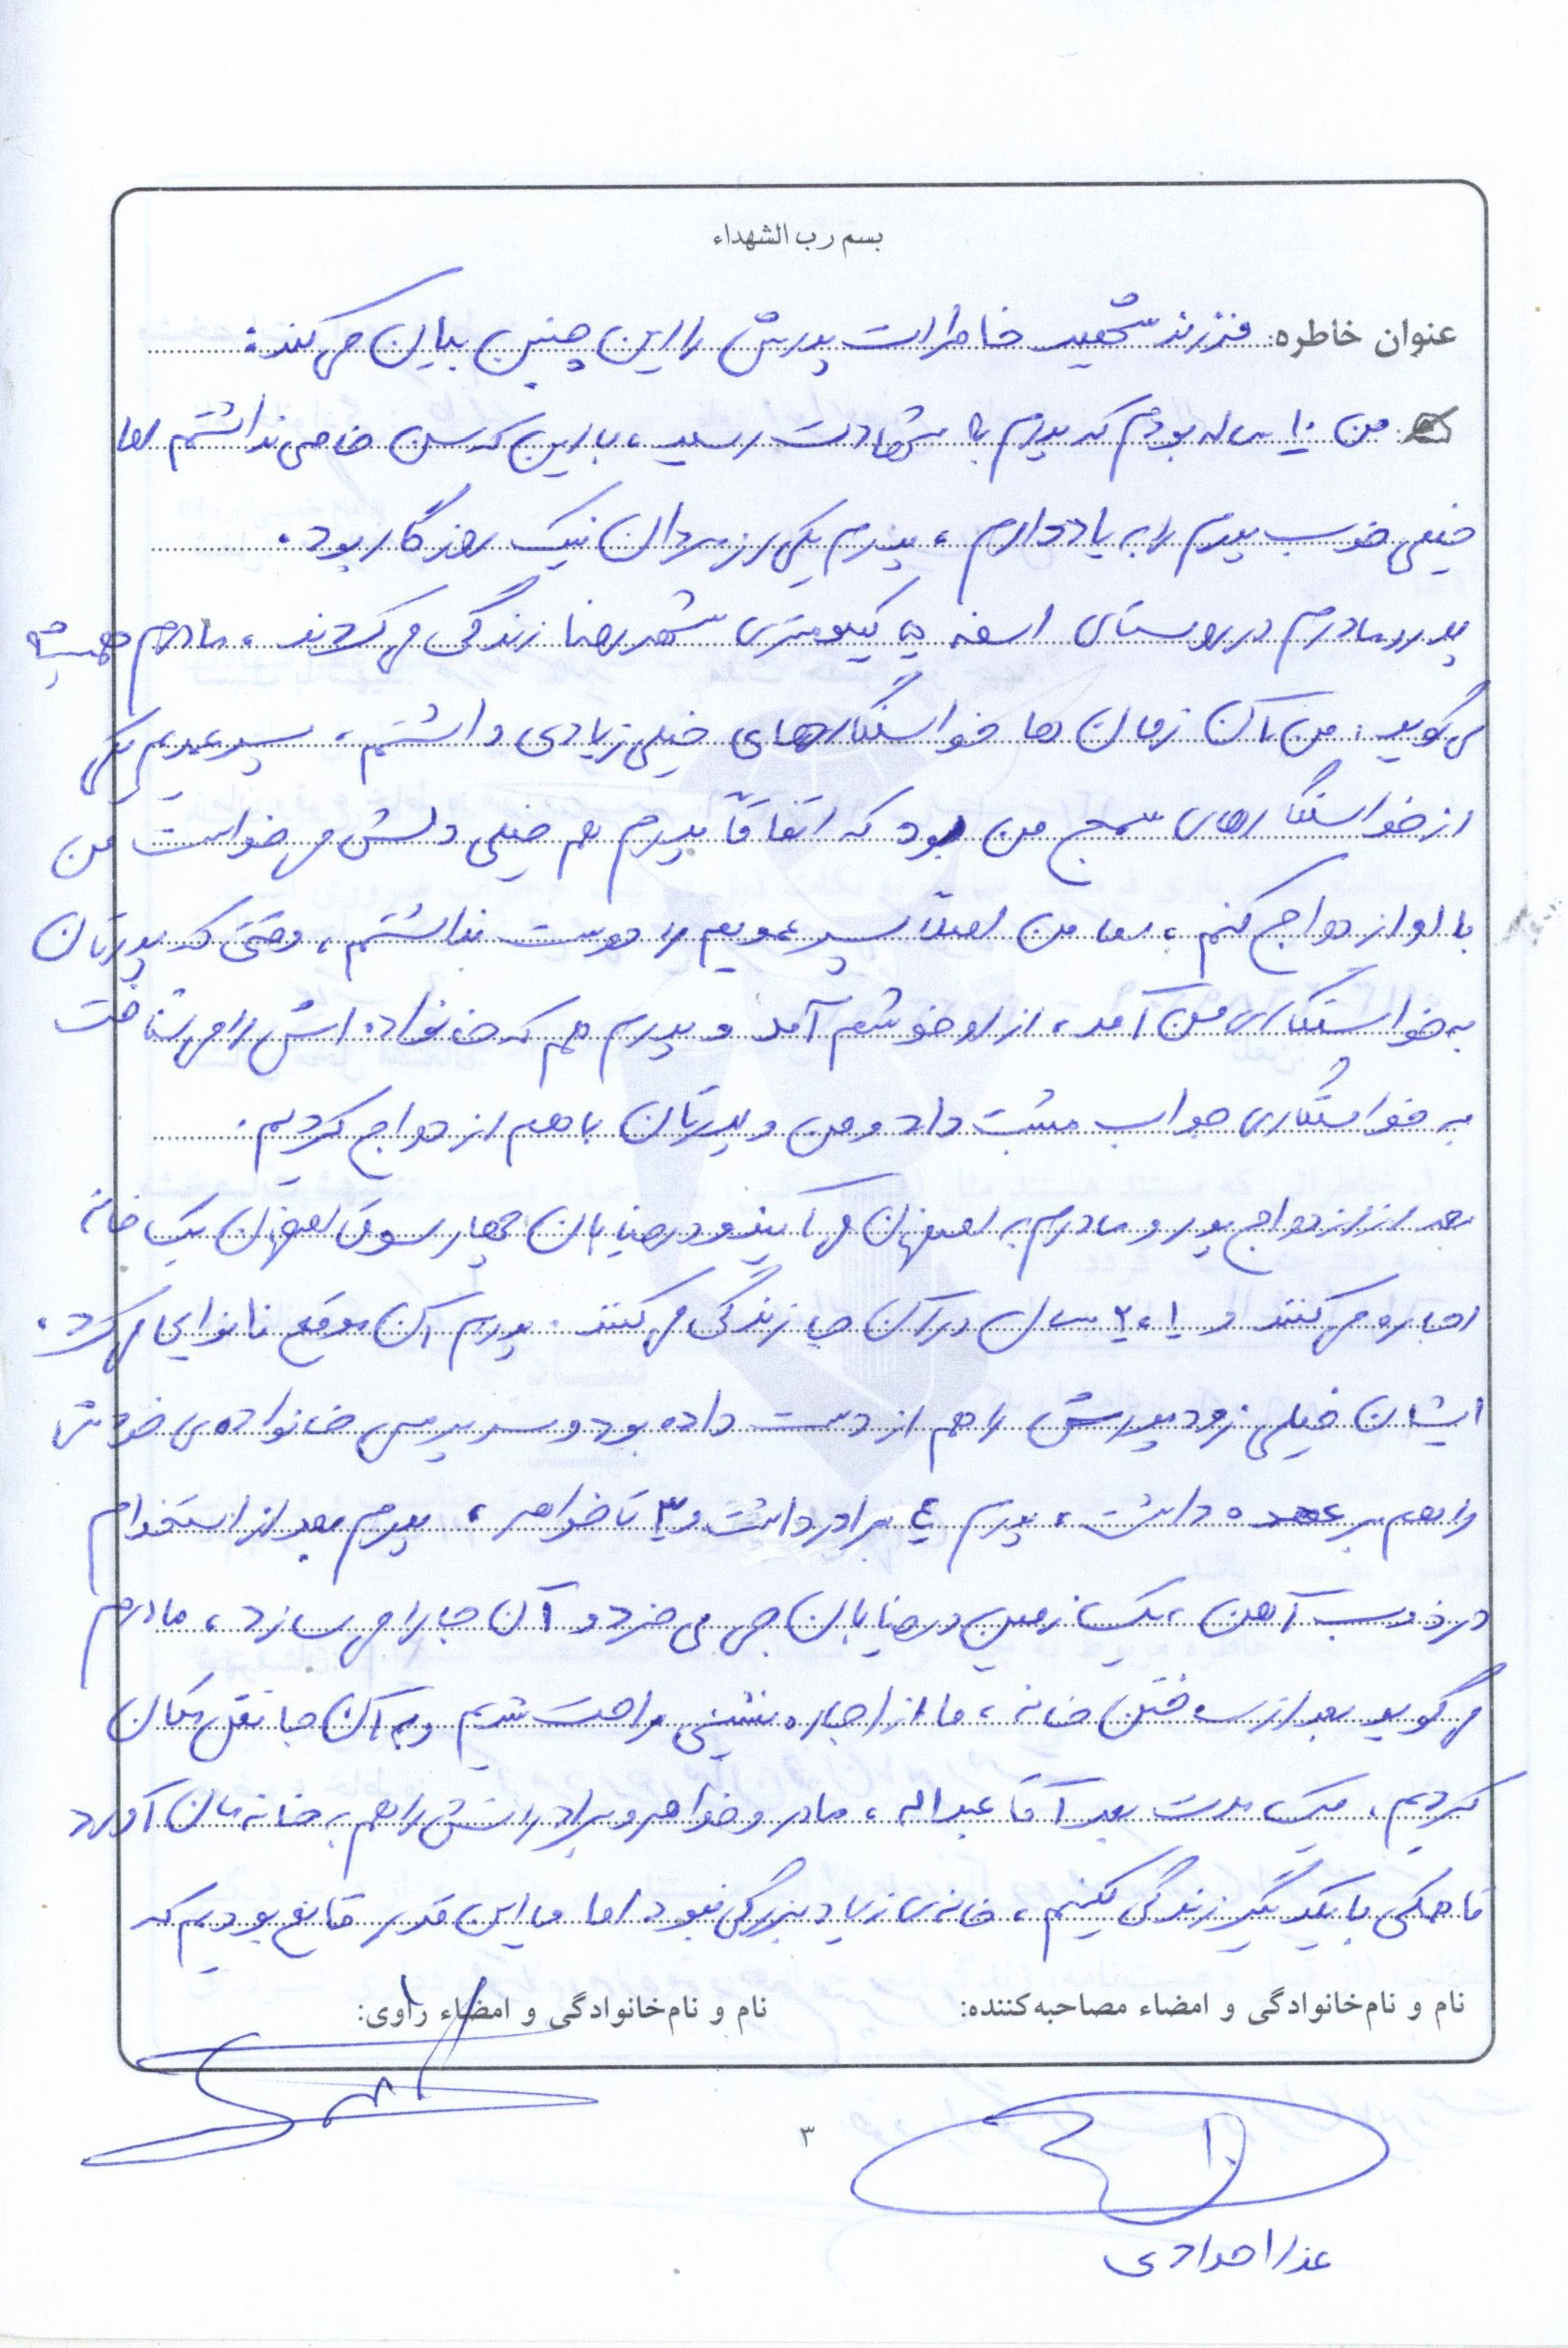 بسم رب الشهداء
عنوان خاطره: فرزند شهید خاطرات پدرش را این چنین بیان می‌کند:
من ۱۰ ساله بودم که پدرم به شهادت رسید، با این که سن خاصی نداشتم اما
خیلی خوب پدرم را به یاد دارم، پدرم یکی از مردان نیک روزگار بود.
پدر و مادرم در روستای اسفه ۵ کیلومتری شهررضا زندگی می‌کردند، مادرم همیشه
می‌گوید: من آن زمان ها خواستگارهای خیلی زیادی داشتم، پسر عمویم یکی
از خواستگارهای سمج من بود که اتفاقاً پدرم هم خیلی دلش می‌خواست من
با او ازدواج کنم، اما من اصلاً پسر عمویم را دوست نداشتم، وقتی که پدرتان
به خواستگاری من آمد، از او خوشم آمد و پدرم هم که خانواده اش را می‌شناخت
به خواستگاری جواب مثبت داد و من و پدرتان با هم ازدواج کردیم.
بعد از ازدواج پدر و مادرم به اصفهان می‌آیند و در خیابان چهارسوق اصفهان یک خانه
اجاره می‌کنند و ۱، ۲ سال در آن جا زندگی می‌کنند. پدرم آن موقع نانوایی می‌کرد.
ایشان خیلی زود پدرش را هم از دست داده بود و سرپرستی خانواده‌ی خودش
را هم بر عهده داشت، پدرم ۴ برادر داشت و ۳ تا خواهر، پدرم بعد از استخدام
در ذوب آهن، یک زمین در خیابان جی می خرد و آن جا را می‌سازد، مادرم
می‌گوید بعد از ساختن خانه، ما از اجاره نشینی راحت شدیم و به آن جا نقل مکان
کردیم. یک مدت بعد آقا عبداله، مادر و خواهر و برادرانش را هم به خانه‌مان آورد
تا همگی با یکدیگر زندگی بکنیم، خانه‌ی زیاد بزرگی نبود اما ما این قدر قانع بودیم که
نام و نام‌خانوادگی و امضاء مصاحبه‌کننده: نام و نام‌خانوادگی و امضاء راوی:
۳
عذرا امدادی